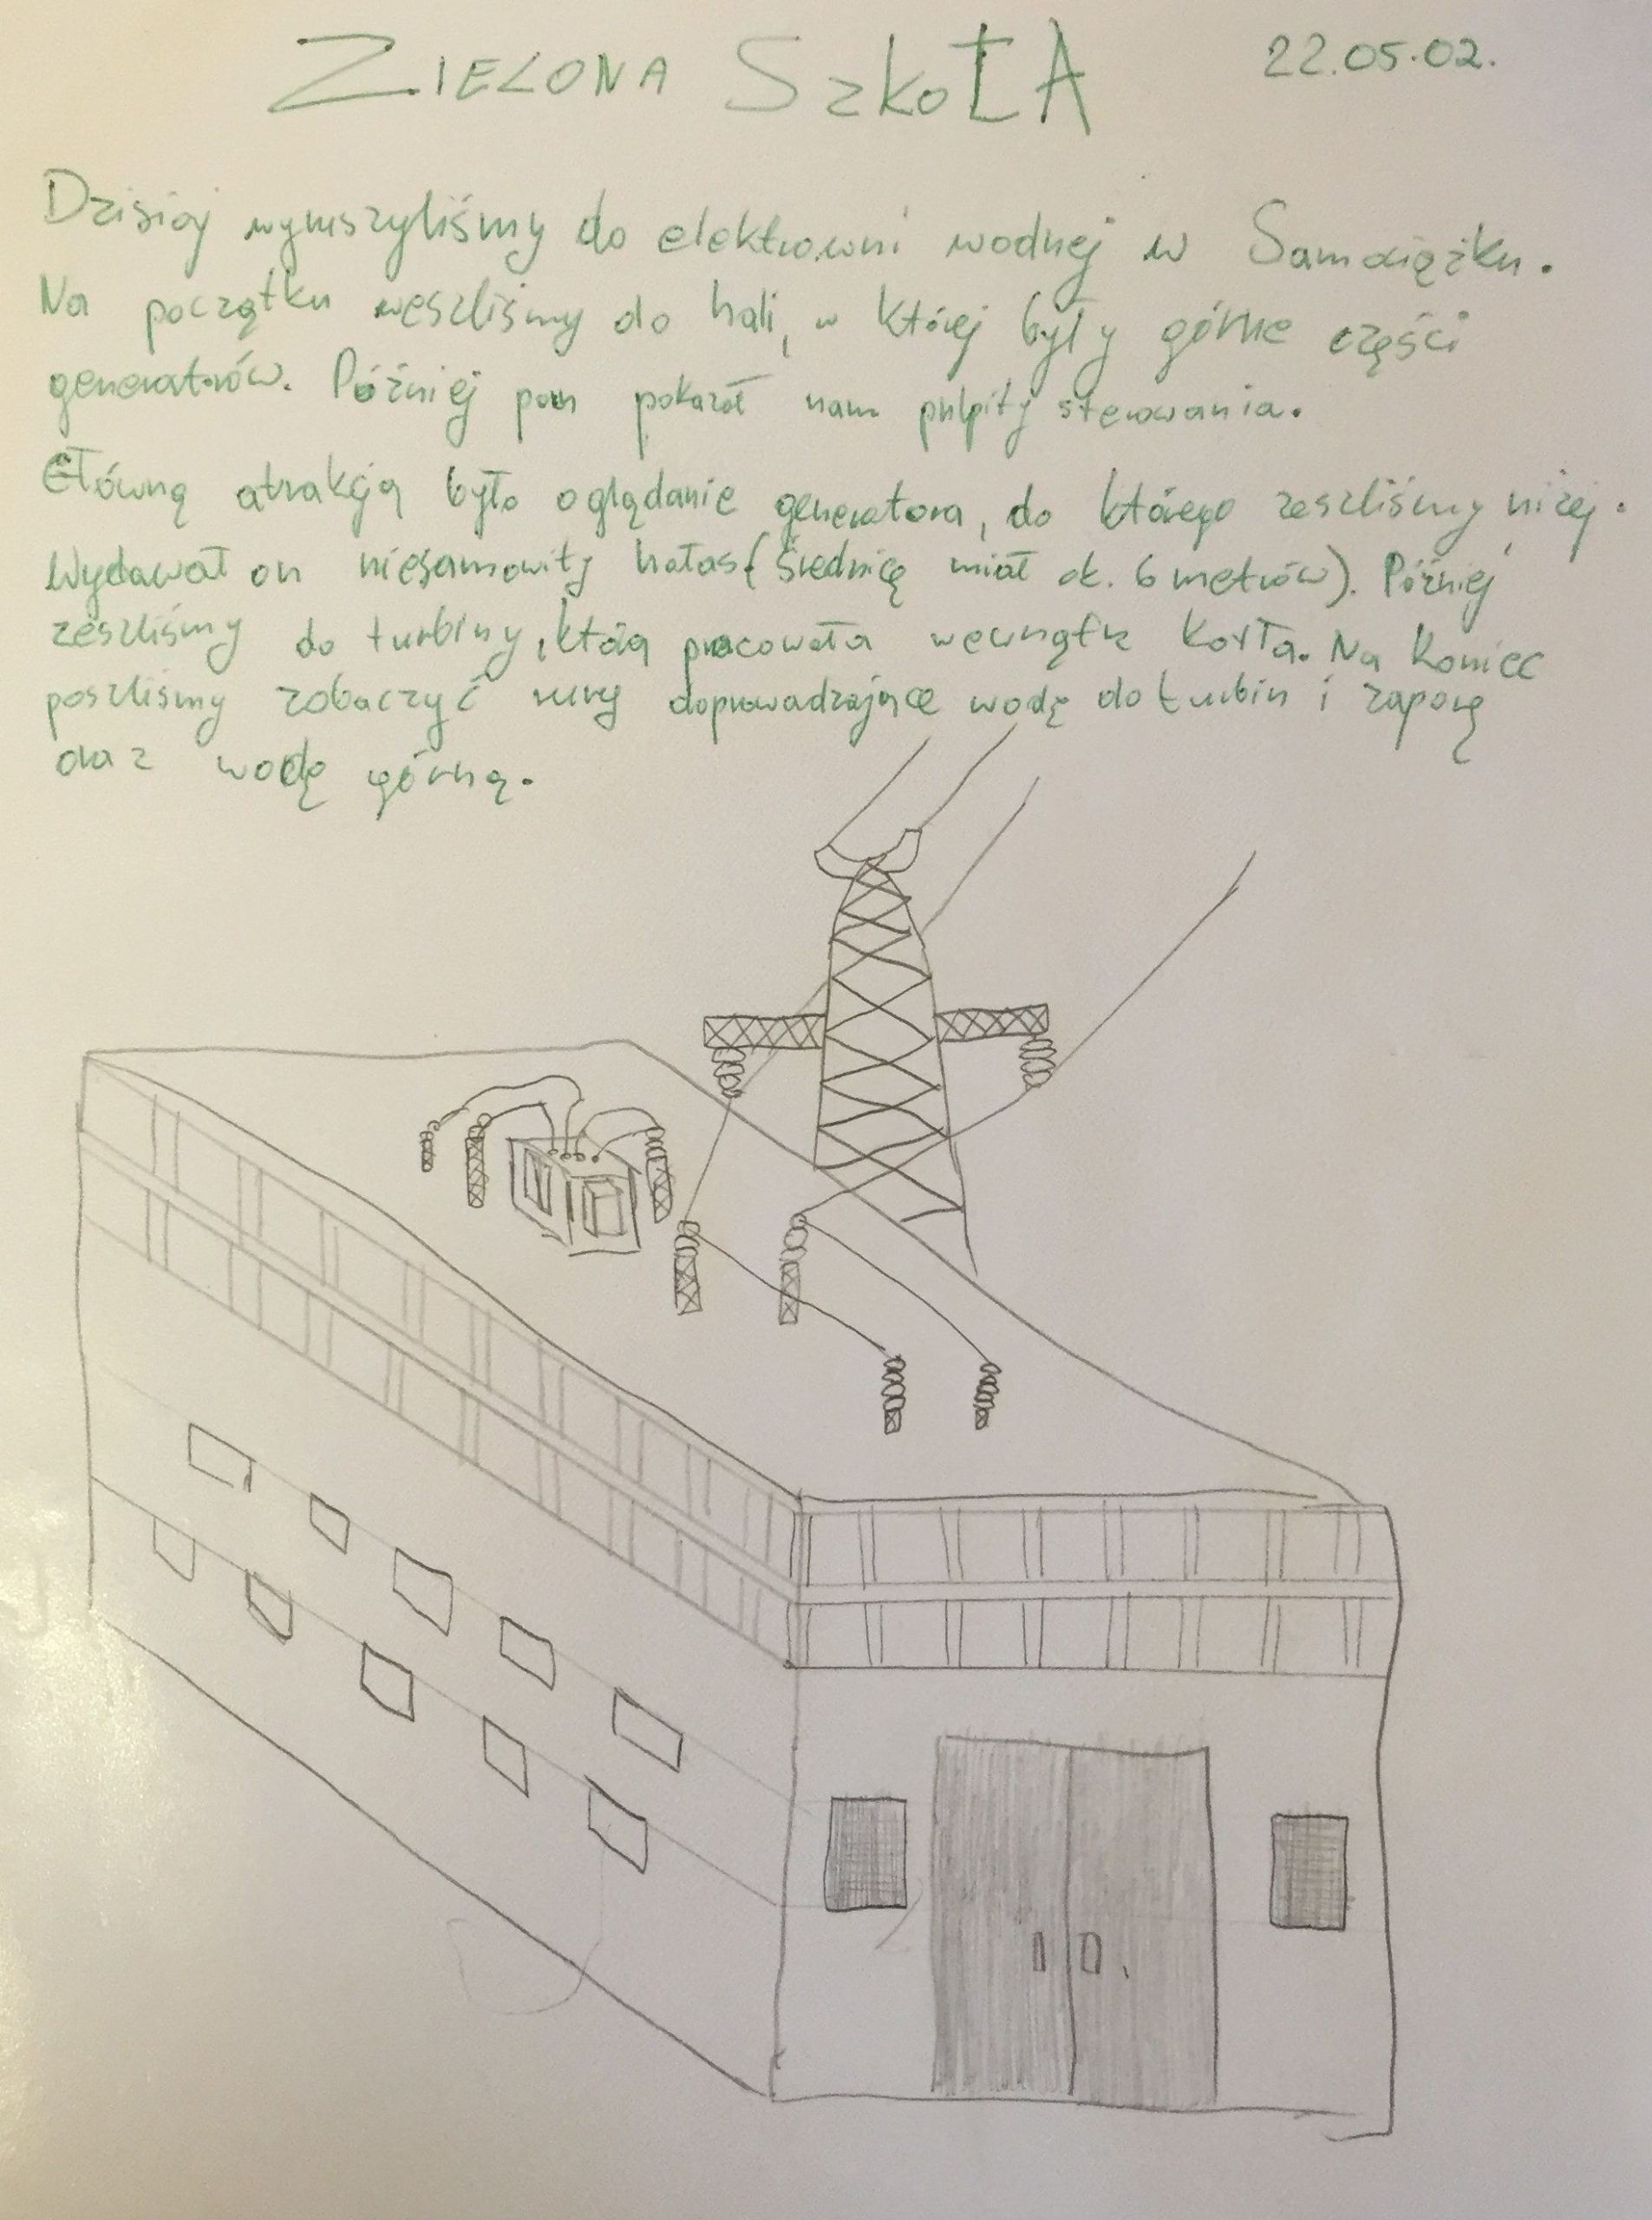 ZIELONA SzkoŁA 22.05.02.
Dzisiaj wyruszyliśmy do elektrowni wodnej w Samociążku.
Na początku weszliśmy do hali, w której były górne części
generatorów. Później pan pokazał nam pulpity sterowania.
Główną atrakcją było oglądanie generatora, do którego zeszliśmy niżej.
Wydawał on niesamowity hałas (średnicę miał ok. 6 metrów). Później
zeszliśmy do turbiny, która pracowała wewnątrz kotła. Na koniec
poszliśmy zobaczyć rury doprowadzające wodę do turbin i zaporę
oraz wodę górną.